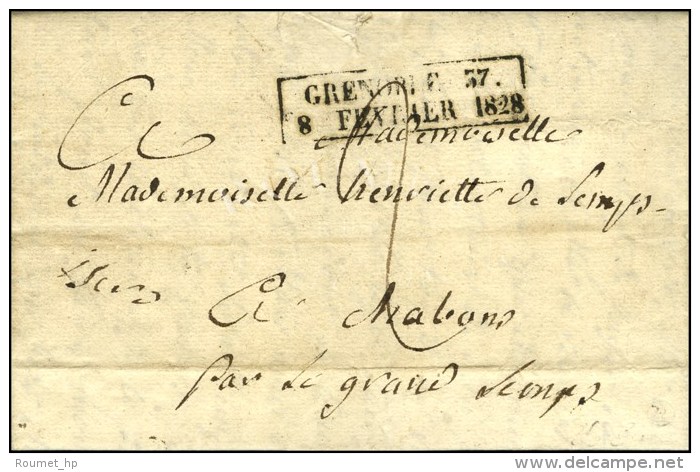 GRENOBLE 37.
8 FEVRIER 1828
A Mademoiselle
Mademoiselle henriette de Lemps
isere
A Chabons
par Le grand Lemps
Roumet_hp
www.delcampe.net